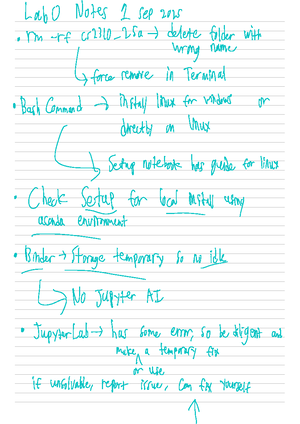 Lab 0 Notes 1 Sep 2025
• rm -rf cs2310_25a → delete folder with
wrong name
force remove in Terminal
• Bash Command → install linux for windows or
directly on linux
Setup notebook has guide for linux
• Check Setup for local install using
aconda environment
• Binder → Storage temporary so no idle
No Jupyter AI
• JupyterLab → has some error, so be diligent and
make a temporary fix
or use
if unsolvable, report issue, Can fix yourself